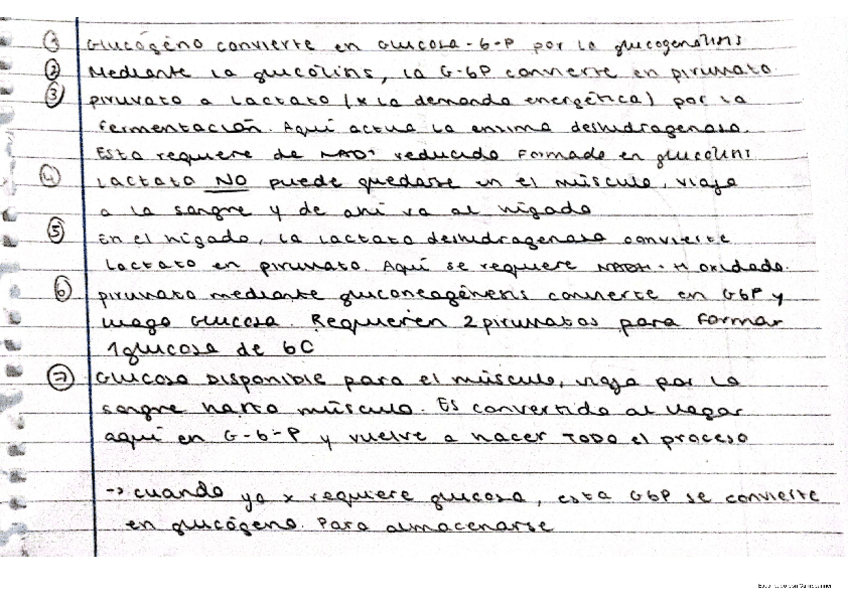 ① Glucógeno convierte en Glucosa-6-P por la glucogenolisis
② Mediante la glucólisis, la G-6P convierte en piruvato.
③ piruvato a lactato (x la demanda energética) por la
fermentación. Aquí actua la enzima deshidrogenasa.
Esta requiere de NAD+ reducido formado en glucolisis
④ Lactato NO puede quedarse en el músculo, viaja
a la sangre y de ahí va al hígado
⑤ En el hígado, la lactato deshidrogenasa convierte
lactato en piruvato. Aquí se requiere NADH + H oxidado.
⑥ piruvato mediante gluconeogénesis convierte en G6P y
luego Glucosa. Requieren 2 piruvatos para formar
1 glucosa de 6C
⑦ Glucosa Disponible para el músculo, viaja por la
sangre hasta músculo. Es convertida al llegar
aquí en G-6-P y vuelve a hacer TODO el proceso
→ cuando ya x requiere glucosa, esta G6P se convierte
en glucógeno. Para almacenarse